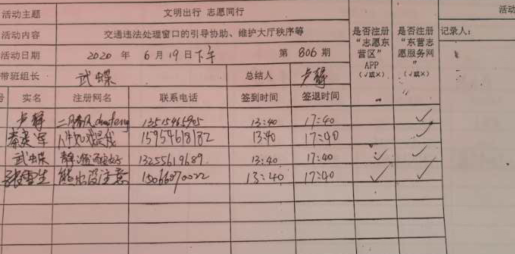 活动主题 文明出行 志愿同行 活动
活动内容 交通违法处理窗口的引导协助、维护大厅秩序等 是否注册“志愿东营区”APP（√或×） 是否注册“东营志愿服务网”（√或×） 记录人：
活动日期 2020 年 6 月 19 日下午 第 806 期
带班组长 武蝶 总结人 卢静
号 实名 注册网名 联系电话 签到时间 签退时间
卢静 13:40 17:40 √
军 15954618182 13:40 17:40 √
武蝶 13255619689 13:40 17:40 √ √
张雪生 熊出没注意 15066070022 13:40 17:40 √ √